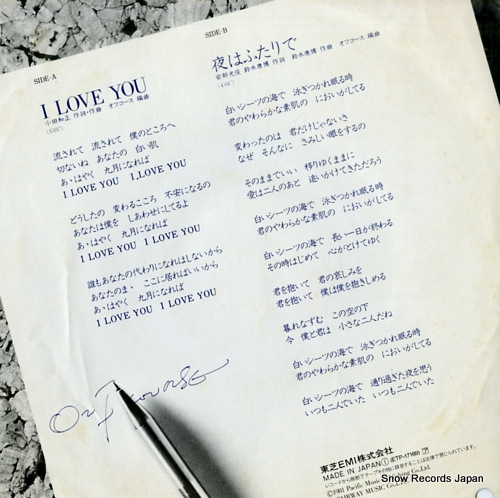 SIDE-A
I LOVE YOU
小田和正 作詞・作曲 オフコース 編曲
流されて 流されて 僕のところへ
切ないね あなたの 白い肌
あ・はやく 九月になれば
I LOVE YOU I LOVE YOU
どうしたの 変わるこころ 不安になるの
あなたは僕を しあわせにしてるよ
あ・はやく 九月になれば
I LOVE YOU I LOVE YOU
誰もあなたの代わりになれはしないから
あなたのま・ ここに居ればいいから
あ・はやく 九月になれば
I LOVE YOU I LOVE YOU
SIDE-B
夜はふたりで
安部光俊 鈴木康博 作詞 鈴木康博 作曲 オフコース 編曲
白いシーツの海で 泳ぎつかれ眠る時
君のやわらかな素肌の においがしてる
変わったのは 君だけじゃないさ
なぜ そんなに さみしい眼をするの
そのままでいい 移りゆくままに
愛は二人のあと 追いかけてきただろう
白いシーツの海で 泳ぎつかれ眠る時
君のやわらかな素肌の においがしてる
白いシーツの海で 長い一日が終わる
その時はじめて 心がとけてゆく
君を抱いて 君の哀しみを
君を抱いて 僕は僕を抱きしめる
暮れなずむ この空の下
今 僕と君は 小さな二人だね
白いシーツの海で 泳ぎつかれ眠る時
君のやわらかな素肌の においがしてる
白いシーツの海で 通り過ぎた夜を思う
いつも二人でいた いつも二人でいた
Off Course
東芝EMI株式会社
MADE IN JAPAN ① ETP-17168
レコードから無断でテープその他に録音することは法律で禁じられています。
Ⓟ1981 Pacific Music Publishing Co.,Ltd.
Snow Records Japan